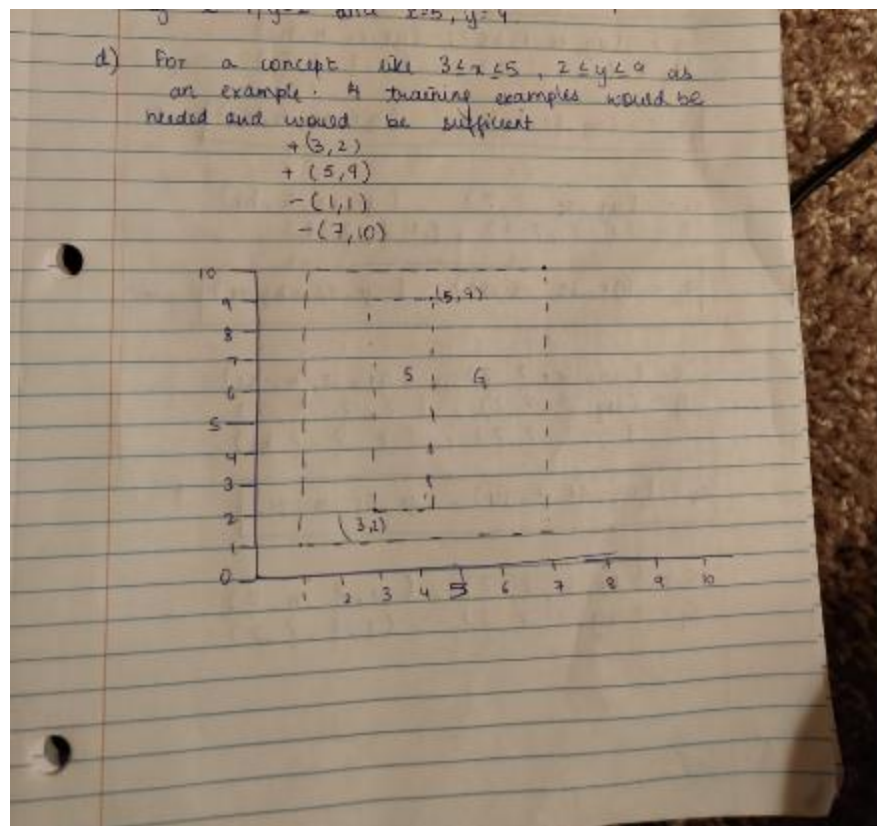 and x=5, y=4
d) For a concept like 3≤x≤5, 2≤y≤9 as
an example. 4 training examples would be
needed and would be sufficient
+(3,2)
+(5,9)
-(1,1)
-(7,10)
10
9 (5,9)
8
7
6 S G
5
4
3
2 (3,2)
1
0
1 2 3 4 5 6 7 8 9 10